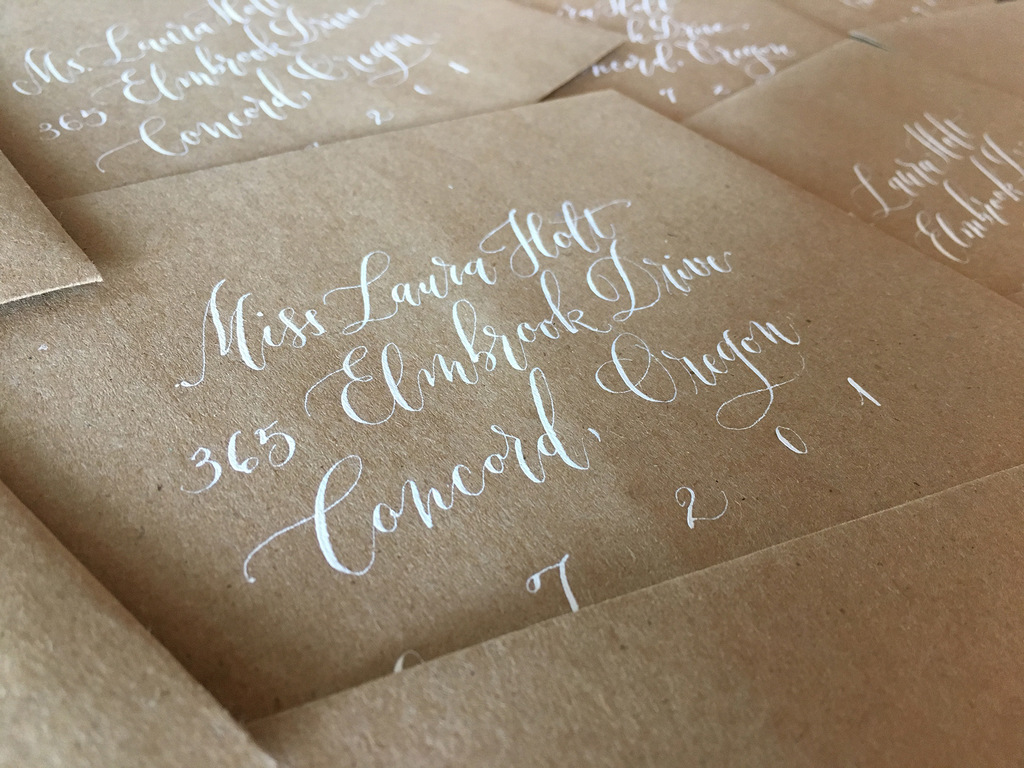 Ms. Laura Holt
365 Elmbrook Drive
Concord, Oregon
2 1
Drive
Oregon
7
Laura Holt
Elmbrook
Miss Laura Holt
365 Elmbrook Drive
Concord, Oregon
7 2 0 1